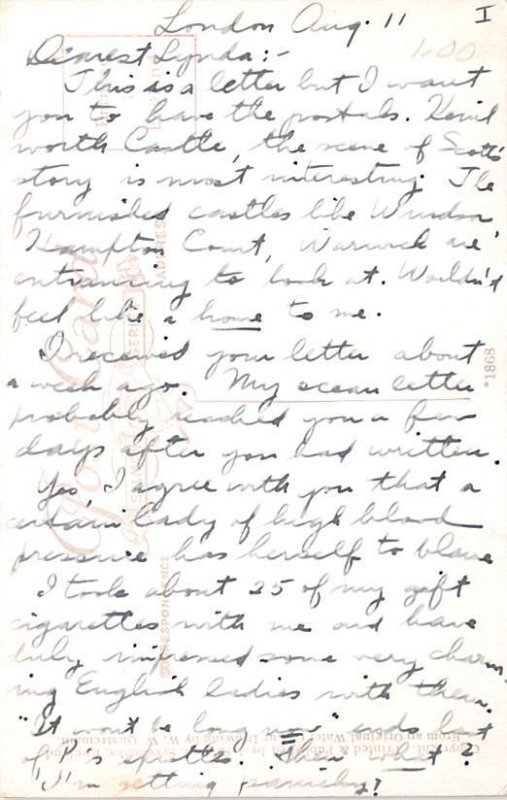 London Aug. 11
I
Dearest Lynda:-
This is a letter but I want
you to have the postals. Kenil
worth Castle, the scene of Scott's
story is most interesting. The
furnished castles like Windsor,
Hampton Court, Warwick are
entrancing to look at. Wouldn't
feel like a home to me.
I received your letter about
a week ago. My ocean letter
probably reached you a few
days after you had written.
Yes, I agree with you that a
certain lady of high blood
pressure has herself to blame
I took about 25 of my gift
cigarettes with me and have
duly impressed some very charm-
ing English ladies with them.
"It won't be long now" ends last
of K's epistles. Then what?
I'm getting panicky?
Post Card
CORRESPONDENCE
*1868
1.00